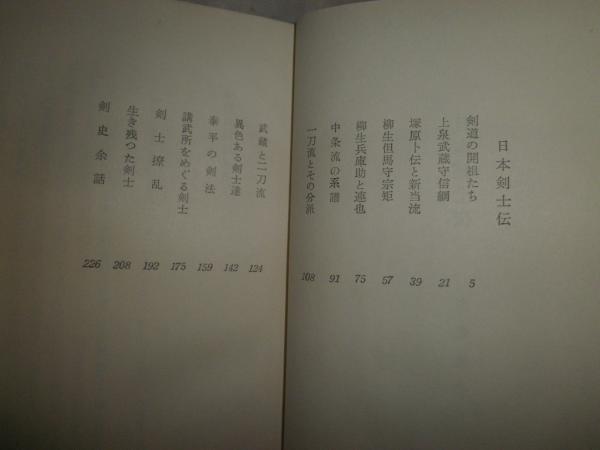 日本剣士伝
剣道の開祖たち 5
上泉武蔵守信綱 21
塚原卜伝と新当流 39
柳生但馬守宗矩 57
柳生兵庫助と連也 75
中条流の系譜 91
一刀流とその分派 108
武蔵と二刀流 124
異色ある剣士達 142
泰平の剣法 159
講武所をめぐる剣士 175
剣士撩乱 192
生き残つた剣士 208
剣史余話 226